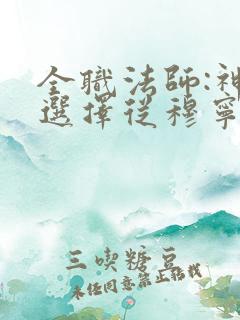 全職法師:神
選擇從穆寧
三喫糖豆
未经同意禁止转载